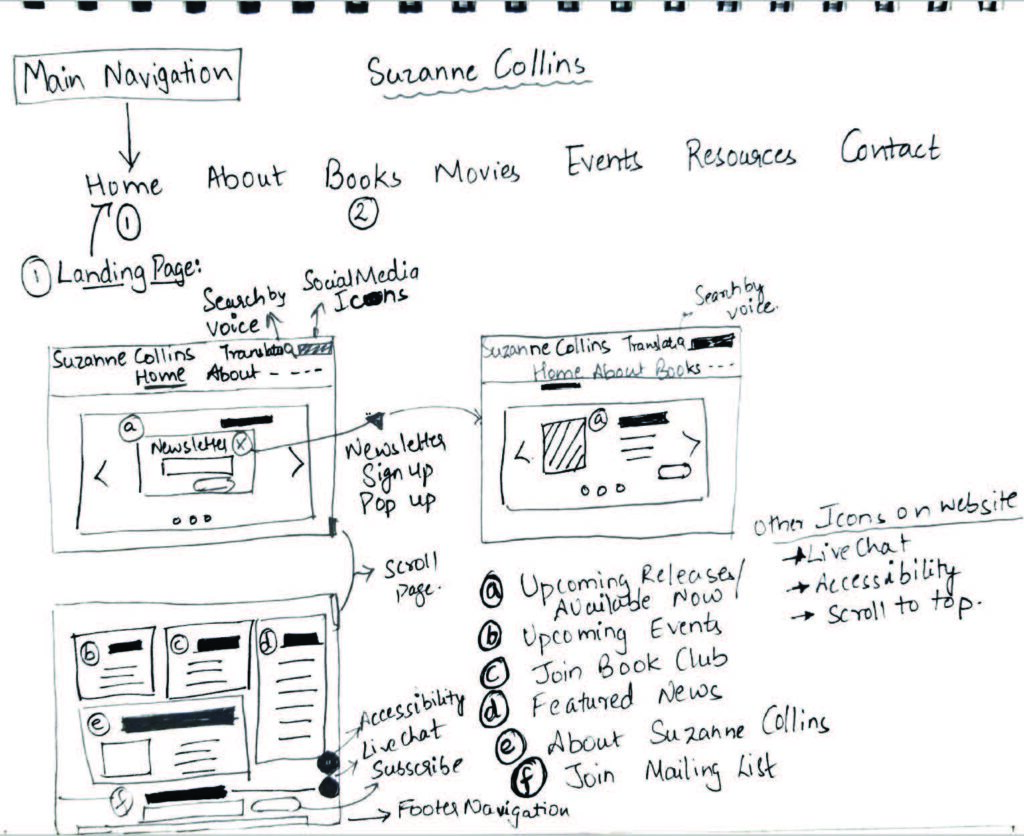 Main Navigation
Suzanne Collins
Home About Books Movies Events Resources Contact
1
2
1 Landing Page:
Search by
voice
Social Media
Icons
Suzanne Collins Translate
Home About - - - -
a
Newsletter X
< >
Newsletter
Sign up
Pop up
Search by
voice.
Suzanne Collins Translate
Home About Books - - -
a
< >
Scroll
Page.
Other Icons on website
→ Live Chat
→ Accessibility
→ Scroll to top.
a Upcoming Releases/
Available Now
b Upcoming Events
c Join Book Club
d Featured News
e About Suzanne Collins
f Join Mailing List
b
c
d
e
f
Accessibility
Live Chat
Subscribe
→ Footer Navigation